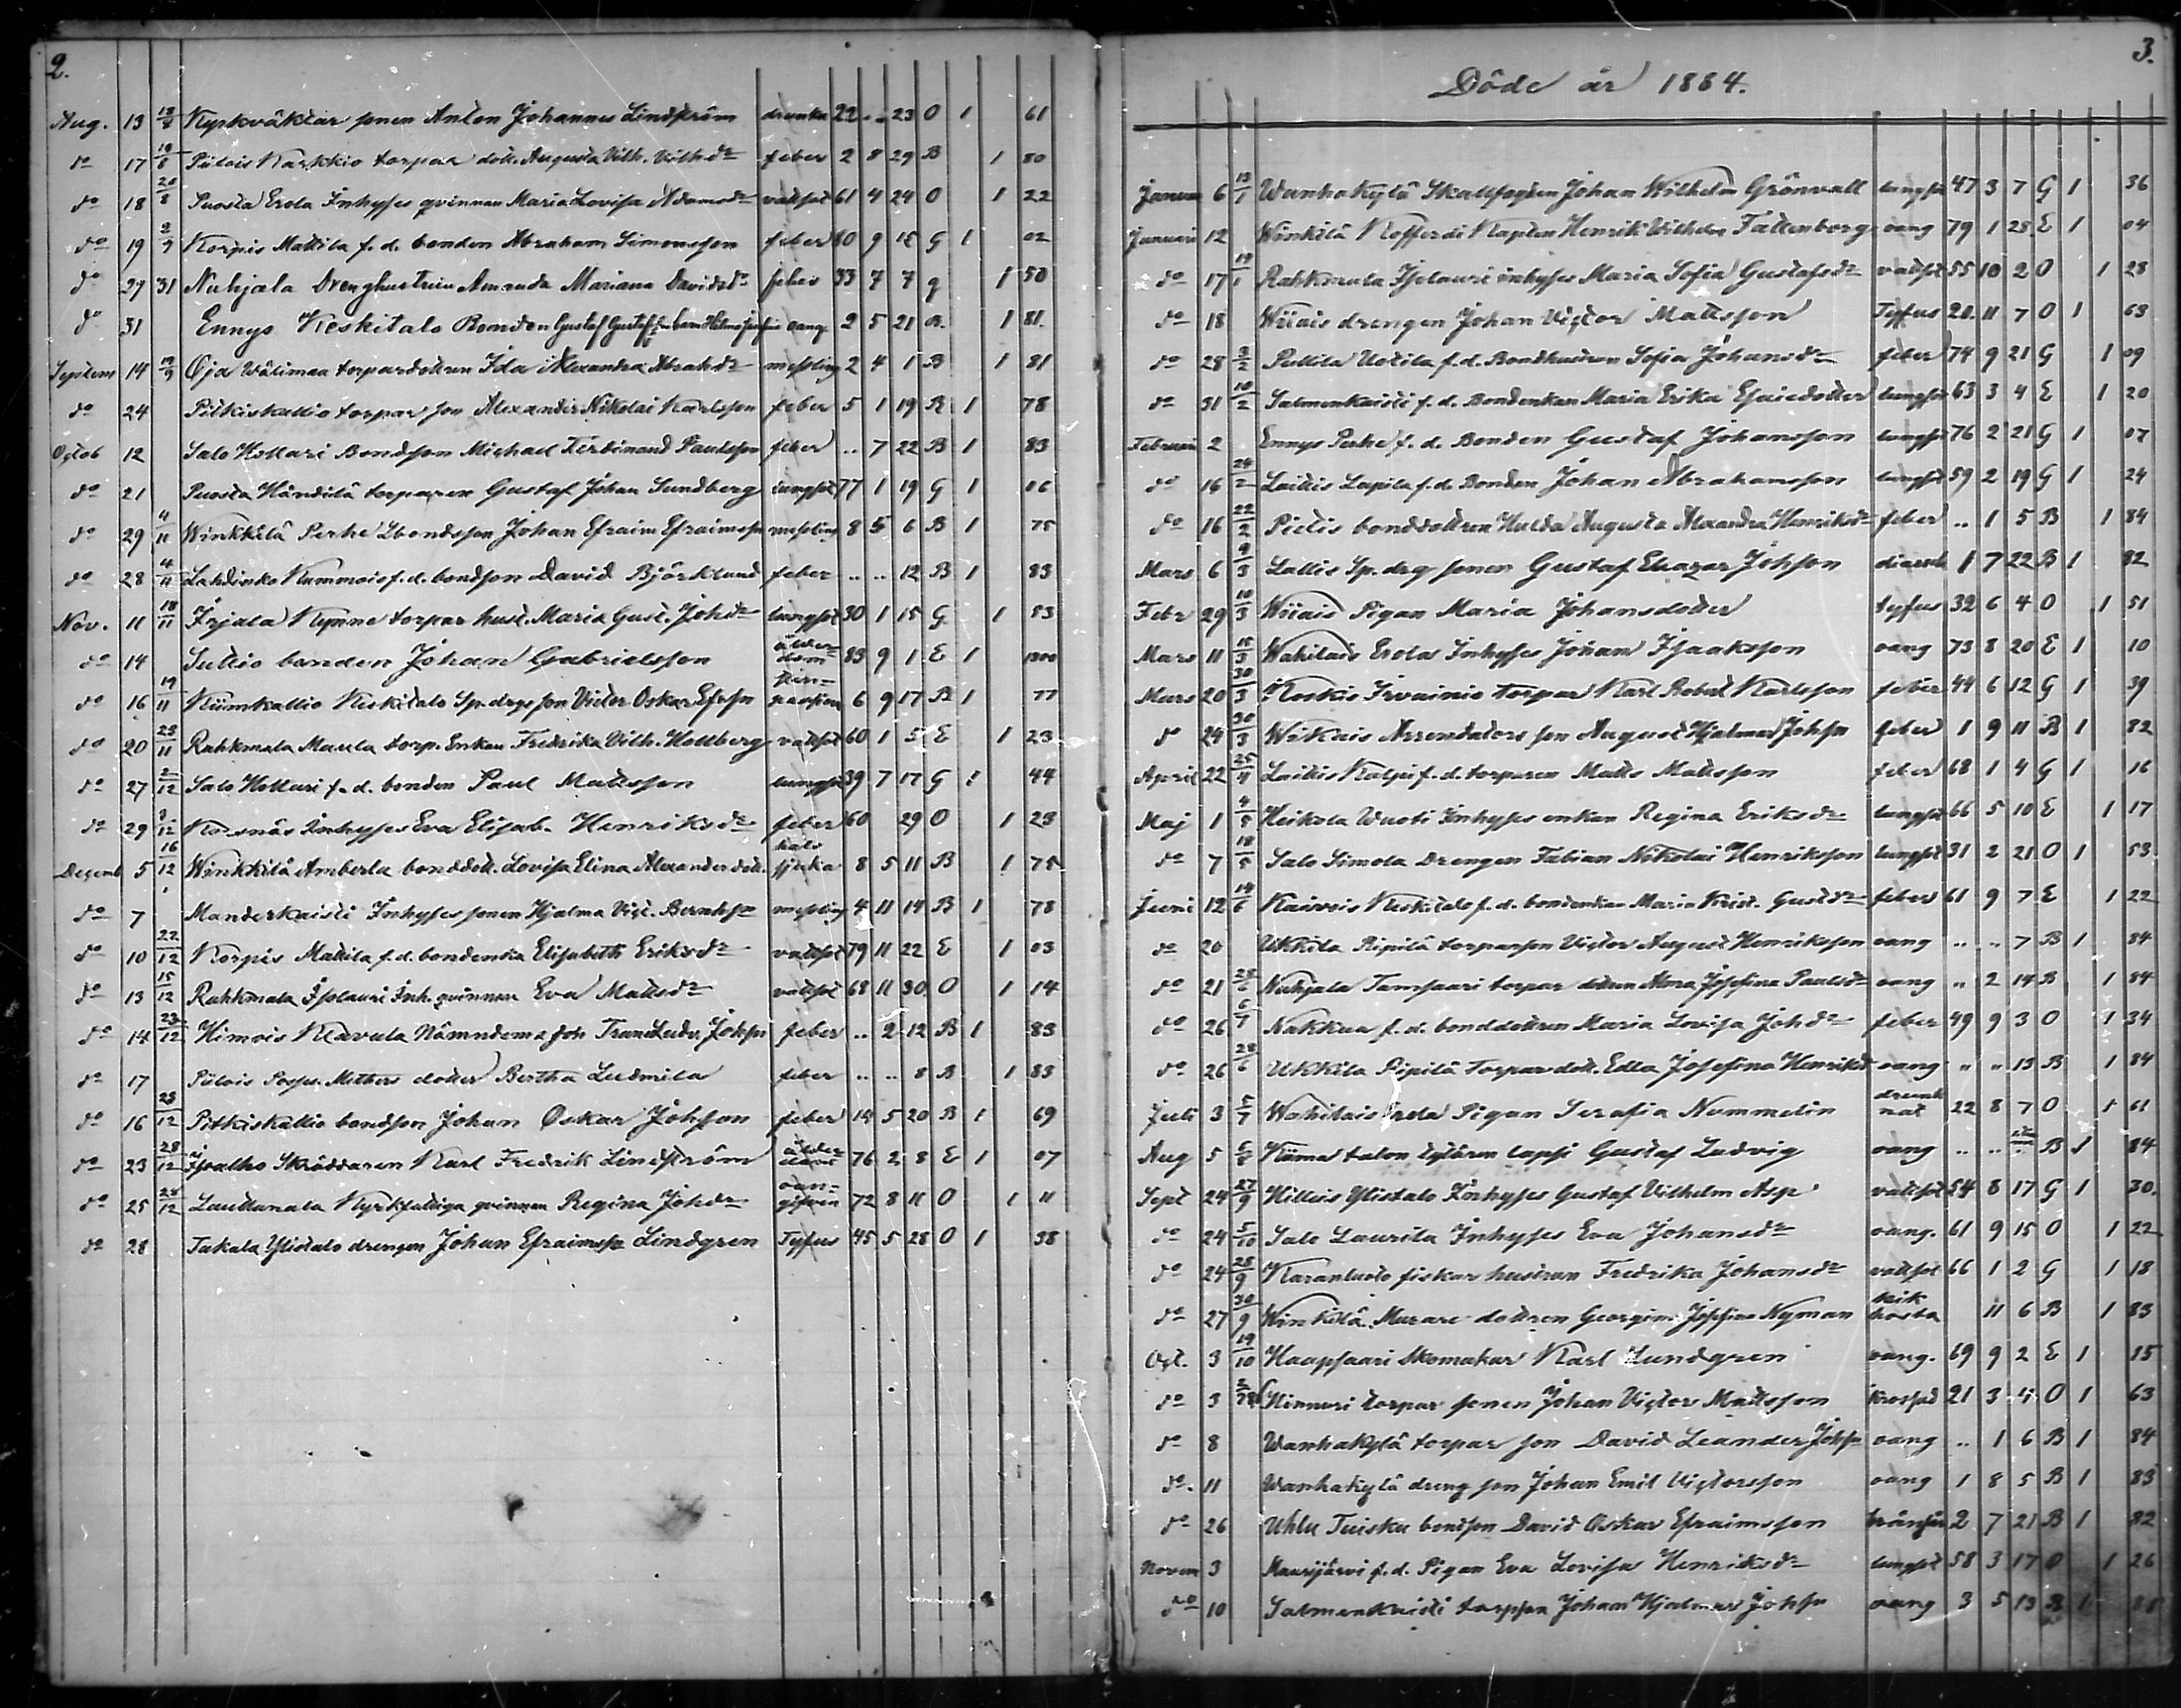 2.
Aug. 13 18/8 Kyrkväktar sonen Anton Johannes Lindström drunkn 22 .. 23 O 1 61
do 17 19/8 Piilois Karkkio torpar dott. Augusta Vilh. Vilhdr feber 2 8 29 B 1 80
do 18 20/8 Puosta Erola Inhyses qvinnan Maria Lovisa Adamsdr vattsot 61 4 24 O 1 22
do 19 2/9 Korpis Mattila f. d. bonden Abraham Simonsson feber 80 9 18 G 1 02
do 29 31 Nuhjala Drenghustrun Amanda Mariana Davidsdr feber 33 7 7 g 1 50
do 31 Ennys Keskitalo Bonden Gustaf oang 2 5 21 B. 1 81.
Septem 14 19/9 Oja Välimaa torpardottren Ida Alexandra Abrahdr messling 2 4 1 B 1 81
do 24 Pitkiskallio torpar son Alexander Nikolai Karlsson feber 5 1 19 B 1 78
Octob 12 Salo Hollari Bondson Michael Ferdinand Paulsson feber .. 7 22 B 1 83
do 21 Puosta Händilä torparen Gustaf Johan Sundberg lungsot 77 1 19 G 1 06
do 29 4/11 Winkkilä Perhe bondsson Johan Efraim Efraimsson messling 8 5 6 B 1 75
do 28 4/11 Lahdinko Kummois f. d. bondson David Björklund feber .. .. 12 B 1 83
Nov. 11 18/11 Irjala Kynne torpar hust. Maria Gust. Johdr lungsot 30 1 15 G 1 53
do 14 Suttio bonden Johan Gabrielsson ålderdom 83 9 1 E 1 1800
do 16 19/11 Kiimkallio Keskitalo Sp. drgs son Victor Oskar Efrsn 6 9 17 B 1 77
do 20 23/11 Rahkmala Maula torp. Enkan Fredrika Vilh. Hollberg vattsot 60 1 5 E 1 23
do 27 2/12 Salo Hollari f. d. bonden Paul Mattsson lungsot 39 7 17 G 1 44
do 29 9/12 Korsnäs Inhyses Eva Elisab. Henriksdr feber 60 29 O 1 23
Decemb 5 16/12 Winkkilä Amberla bonddott. Lovisa Elina Alexander dott. halssjuka 8 5 11 B 1 75
do 7 Manderkaisti Inhyses sonen Hjalma Vict. Bernhsn messling 4 11 14 B 1 78
do 10 22/12 Korpis Mattila f. d. bondenka Elisabeth Eriksdr vattsot 79 11 22 E 1 03
do 13 15/12 Rahkmala Isolauri Inh. qvinnan Eva Mattsdr vattsot 68 11 30 O 1 14
do 14 23/12 Himois Klavula Nämndema son Frans Ludv. Johsn feber .. 2 12 B 1 83
do 17 Piilois dotter Bertha Ludmila feber .. .. 8 B 1 83
do 16 23/12 Pitkiskallio bondson Johan Oskar Johsson feber 14 5 20 B 1 69
do 23 28/12 Isoalho Skräddaren Karl Fredrik Lindström ålderdom 76 2 8 E 1 07
do 25 28/12 Lautkunala Kyrkfattiga qvinnan Regina Johdr oangifven 72 8 11 O 1 11
do 28 Takala Ylistalo drengen Johan Efraimsson Lindgren Tyfus 45 5 28 O 1 38
3.
Döde år 1884.
Januar 6 13/1 Wanhakylä Skallfogden Johan Wilhelm Grönvall lungsot 47 3 7 G 1 36
Januari 12 Winkilä Kofferdi Kapten Henrik Wilhelm Fattenborg oang 79 1 28 E 1 04
do 17 19/1 Rahkmala Isolauri inhyses Maria Sofia Gustafsdr vattsot 55 10 2 O 1 28
do 18 Wiiais drengen Johan Victor Mattsson Tyfus 20. 11 7 O 1 63
do 28 3/2 Pullola Uotila f. d. Bondhustrun Sofia Johansdr feber 74 9 21 G 1 09
do 31 10/2 Salmenkaisti f. d. Bondenkan Maria Erika Esaiedotter lungsot 63 3 4 E 1 20
Februari 2 Ennys Perhe f. d. Bonden Gustaf Johansson lungsot 76 2 21 G 1 07
do 16 24/2 Laitis Lapila f. d. Bonden Johan Abrahamsson lungsot 59 2 19 G 1 24
do 16 22/2 Pietis bonddottren Hulda Augusta Alexandra Henriksdr feber .. 1 5 B 1 84
Mars 6 9/3 Lallis Sp. drg sonen Gustaf Eleazar Johsson diarreh 1 7 22 B 1 82
Febr 29 10/3 Wiiais Pigan Maria Johansdotter tyfus 32 6 4 O 1 51
Mars 11 15/3 Wahilais Erola Inhyses Johan Isaaksson oang 73 8 20 E 1 10
Mars 20 30/3 Koskis Irvainio torpar Karl Robert Karlsson feber 44 6 12 G 1 39
do 24 30/3 Wikais Arrendators son August Hjalmar Johsn feber 1 9 11 B 1 82
April 22 25/4 Laitis Kalpi f. d. torparen Matts Mattsson feber 68 1 4 G 1 16
Maj 1 4/5 Heikola Wuoti Inhyses enkan Regina Eriksdr lungsot 66 5 10 E 1 17
do 7 18/5 Salo Simola Drengen Fabian Nikolai Henriksson lungsot 31 2 21 O 1 53
Juni 12 14/6 Kaivois Keskitalo f. d. bondenkan Maria Krist. Gustdr feber 61 9 7 E 1 22
do 20 Ukkila Ripilä torparson Victor August Henriksson oang .. .. 7 B 1 84
do 21 28/6 Nuhjala Tamsaari torpar dottren Alma Josefina Paulsdr oang .. 2 14 B 1 84
do 26 6/7 Nakkua f. d. bonddottren Maria Lovisa Johdr feber 49 9 3 O 1 34
do 26 28/6 Ukkila Pipilä Torpar dott. Edla Josefina Henriksd oang " " 13 B 1 84
Juli 3 5/7 Wahilais Erola Pigan Serafia Nummelin drunknat 22 8 7 O 1 61
Aug 5 6/8 Kiimas talon tytären lapsi Gustaf Ludvig oang .. .. B 1 84
Sept 24 27/9 Hilleis Ylistalo Inhyses Gustaf Vilhelm Asp vattsot 54 8 17 G 1 30.
do 24 5/10 Salo Laurila Inhyses Eva Johansdr oang. 61 9 15 O 1 22
do 24 28/9 Karanluoto fiskar hustrun Fredrika Johansdr vattsot 66 1 2 G 1 18
do 27 30/9 Winkilä Murare dottren Georgina Josefina Nyman kikhosta 11 6 B 1 83
Oct. 3 19/10 Haapsaari Skomakar Karl Lundgren oang. 69 9 2 E 1 15
do 3 Hinnari torpar sonen Johan Victor Mattsson 21 3 4 O 1 63
do 8 Wanhakylä torpar son David Leander Johsn oang .. 1 6 B 1 84
do. 11 Wanhakylä dreng son Johan Emil Victorsson oang 1 8 5 B 1 83
do 26 Uhlu Tuisku bondson David Oskar Efraimsson 2 7 21 B 1 82
Novem 3 Maurijärvi f. d. Pigan Eva Lovisa Henriksdr lungsot 58 3 17 O 1 26
do 10 Salmenkaisti torpson Johan Hjalmar Johsn oang 3 5 13 B 1